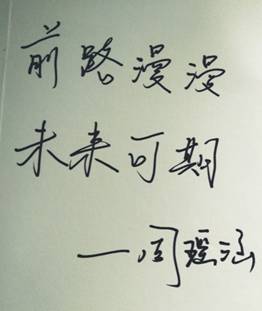 前路漫漫
未来可期
—周瑶涵